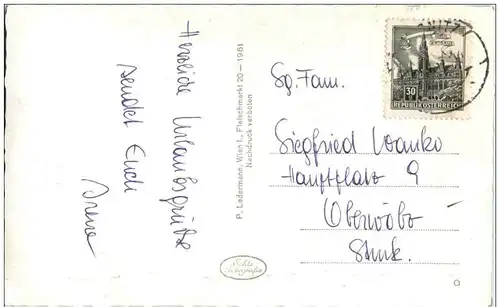 Herzliche Urlaubsgrüße
sendet Euch
Irene
P. Ledermann, Wien I., Fleischmarkt 20 - 1961
Nachdruck verboten
Echte
Fotografie
30
REPUBLIK ÖSTERREICH
Sg. Fam.
Siegfried Wanko
Hauptplatz 9
Oberwölz
Stmk.